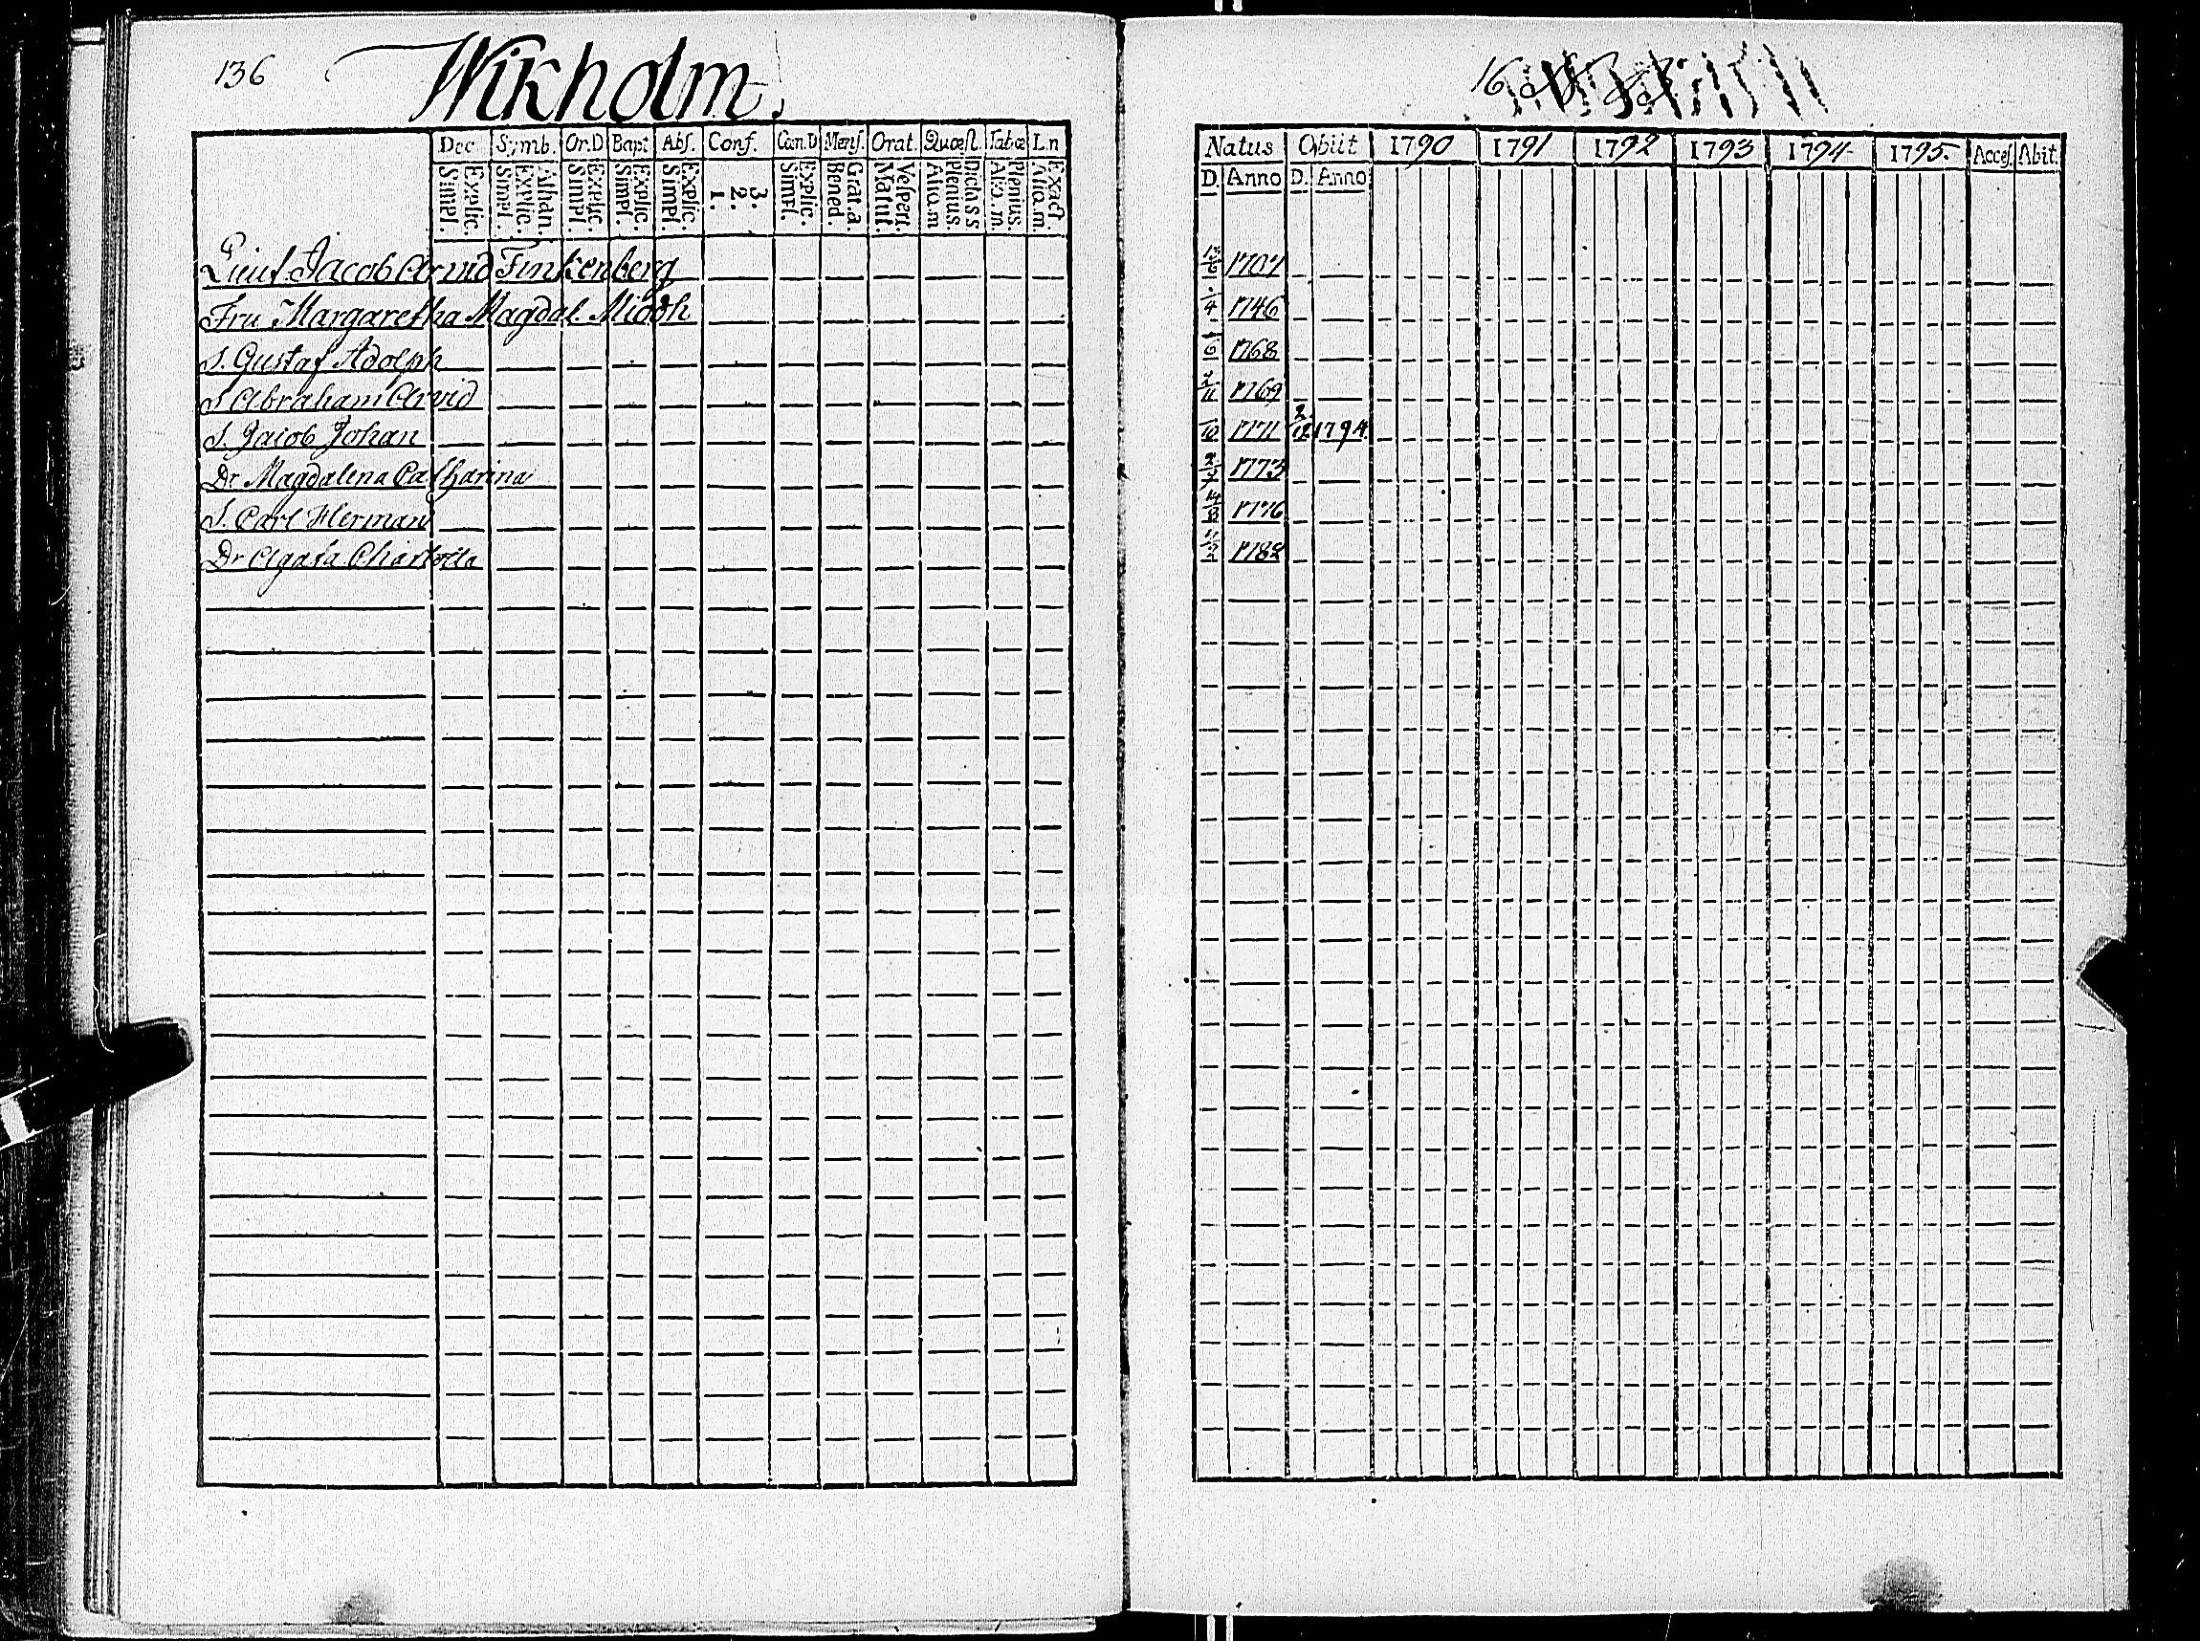 136
Wikholm.
Dec. Symb. Or.D Bapt. Abs. Conf. Can.D Mens. Orat. Quæst. Tabæ Ln
Explic. Simpl. Athan. Explic. Simpl. Explic. Simpl. Explic. Simpl. Explic. Simpl. 3. 2. 1. Explic. Simpl. Grat.a Bened. Vespert. Matut. Dictass Plenius. Aliq.m Plenius. Aliq.m. Exact Aliq.m.
Lieut Jacob Arvid Finkenberg
Fru Margaretha Magdal.
S. Gustaf Adolph
S Abraham Arvid
S. Jacob Johan
Dr Magdalena Catharina
S. Carl Herman
Dr Agata Charlotta
16
Natus Obiit 1790 1791 1792 1793 1794 1795. Acces. Abit.
D. Anno D. Anno
1746
6 1768
11 1769
10 1771 2/12 1794.
1773
1776
1782